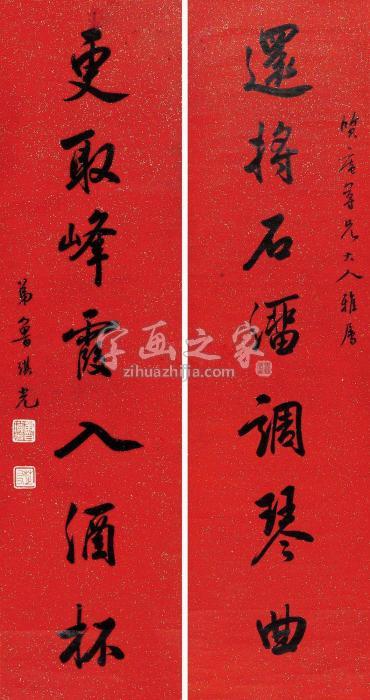 還將石溜調琴曲
大人雅屬
更取峰霞入酒杯
弟魯琪光
字画之家
zihuazhijia.com